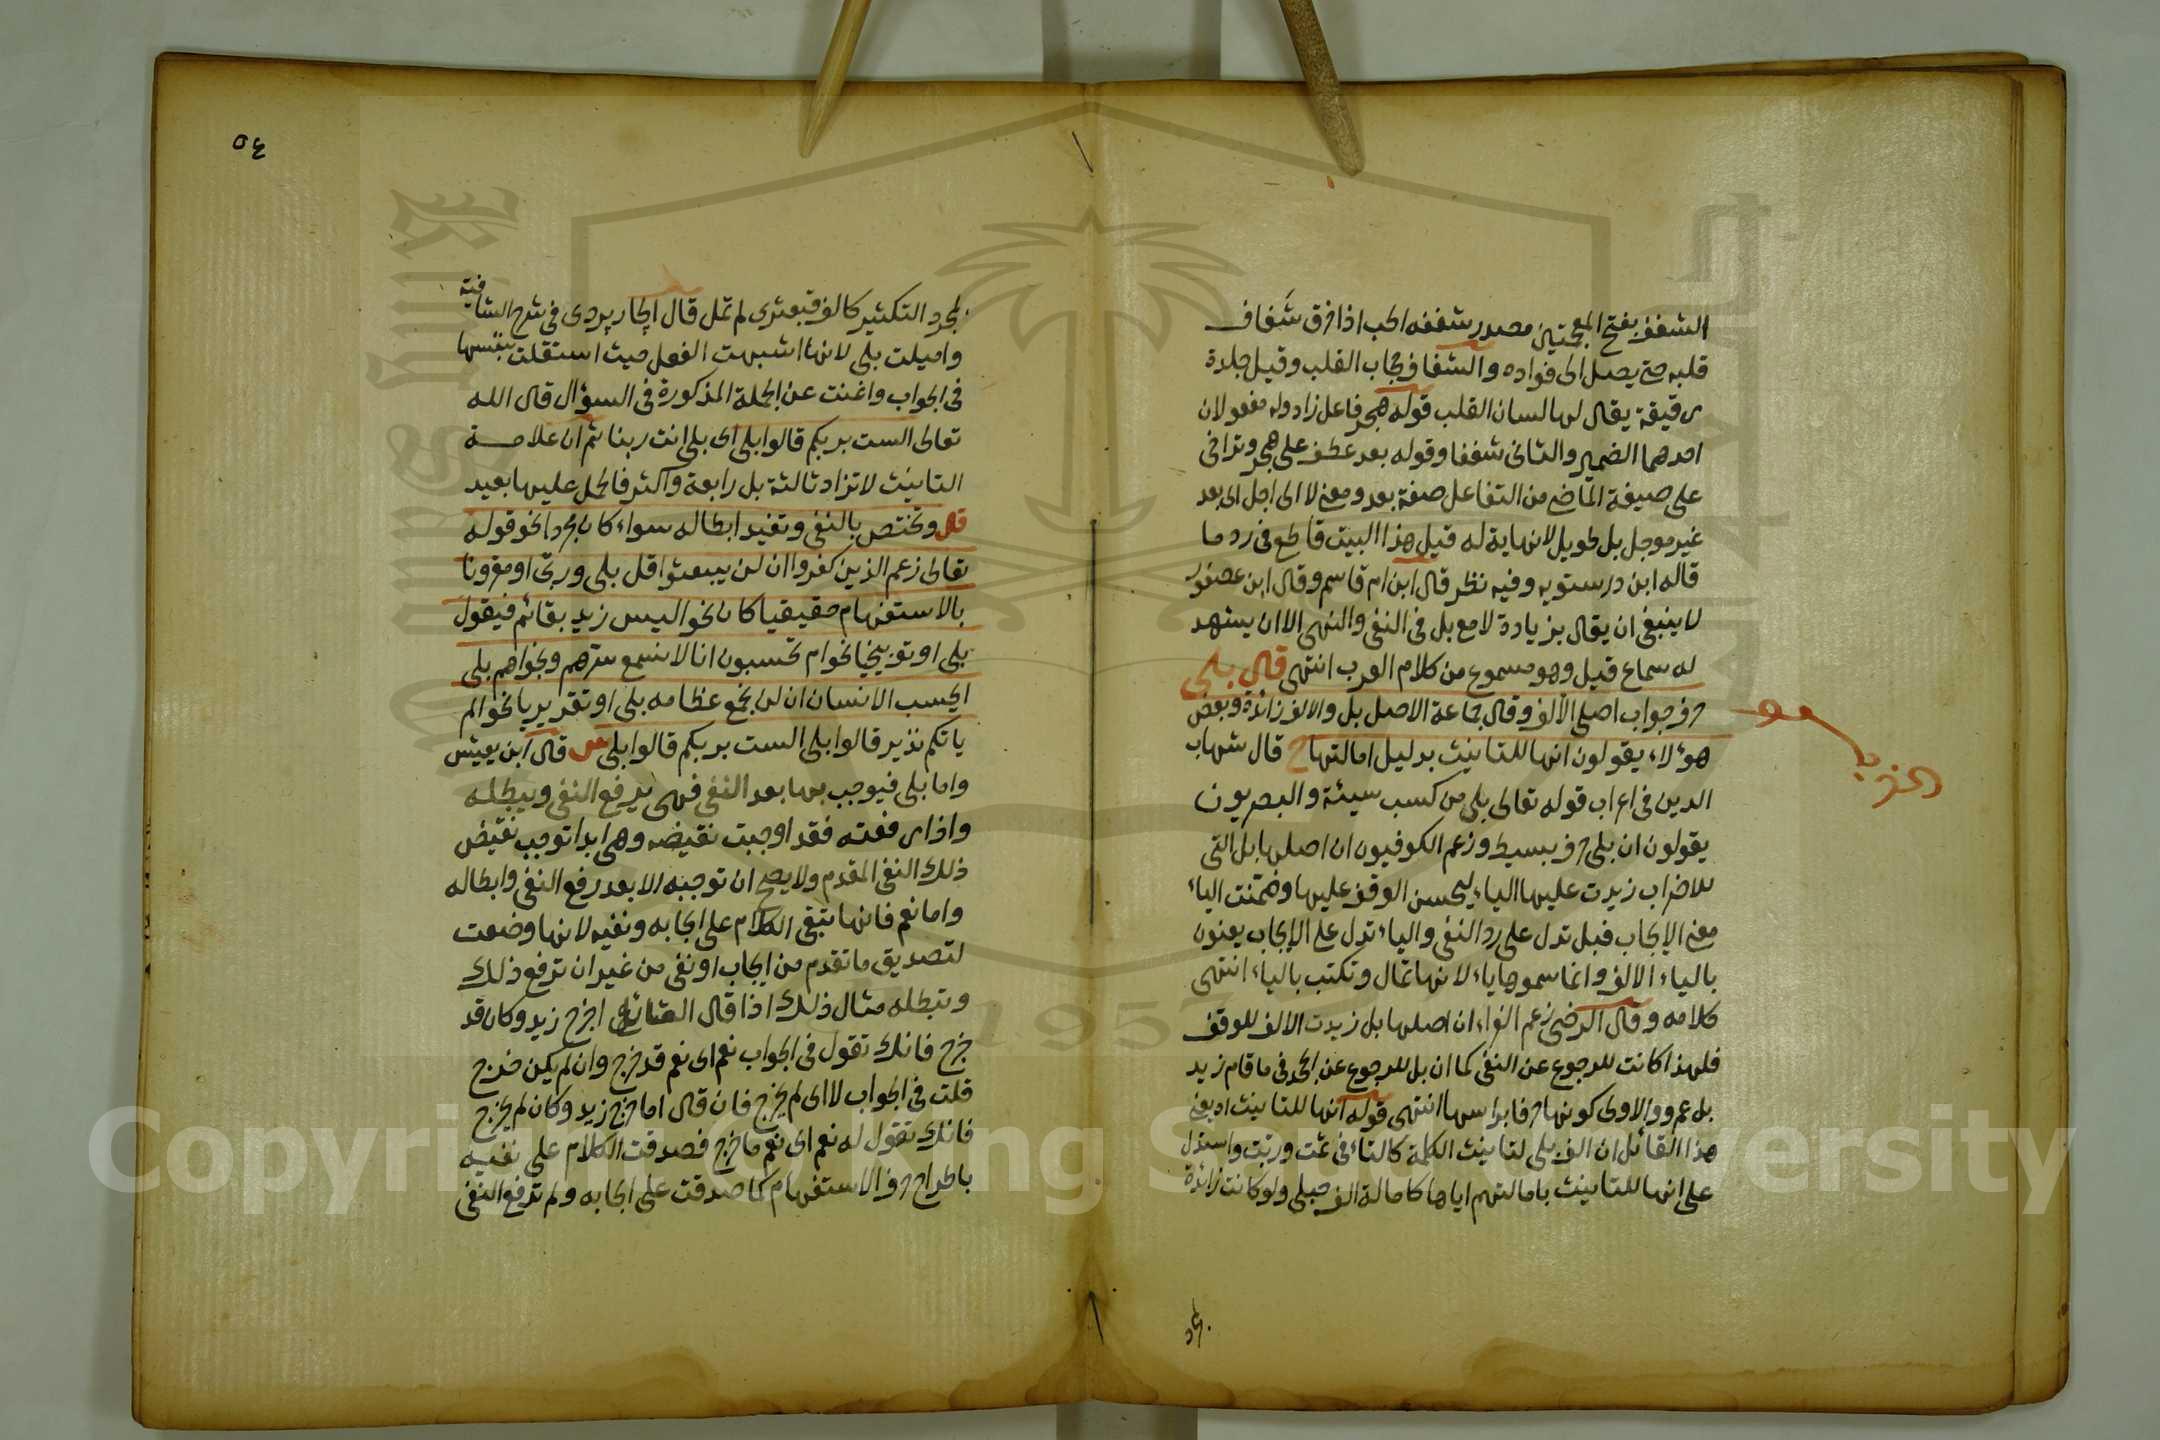 الشغف بفتح المعجمتين مصدر شغفه الحب اذا خرق شغاف
قلبه حتى يصل الى فؤاده والشغاف حجاب القلب وقيل جلدة
رقيقة يقال لها لسان القلب قوله هجر فاعل زاد وله مفعولان
احدهما الضمير والثانى شغفا وقوله بعد عطف على هجر وتراخى
على صيغة الماضى من التفاعل صفة بعد ومعنى لا الى اجل اى بعد
غير موجل بل طويل لانهاية له قيل هذا البيت قاطع فى رد ما
قاله ابن درستويه وفيه نظر قال ابن ام قاسم وقال ابن عصفور
لا ينبغى ان يقال بزيادة لا مع بل فى النفى والنهى الا ان يشهد
له سماع قيل وهو مسموع من كلام العرب انتهى قال بلى
حرف جواب اصلى الالف وقال جماعة الاصل بل والالف زائدة وبعض
هؤلاء يقولون انها للتانيث بدليل امالتها ح قال شهاب
الدين فى اعراب قوله تعالى بلى من كسب سيئة والبصريون
يقولون ان بلى حرف بسيط وزعم الكوفيون ان اصلها بل التى
للاضراب زيدت عليها الياء ليحسن الوقف عليها وضمنت الياء
معنى الايجاب فبل تدل على رد النفى والياء تدل على الايجاب يعنون
بالياء الالف وانما سموها ياء لانها تمال وتكتب بالياء انتهى
كلامه وقال الرضى زعم الفراء ان اصلها بل زيدت الالف للوقف
فلهذا كانت للرجوع عن النفى كما ان بل للرجوع عن الجحد فى ما قام زيد
بل عمرو والاولى كونها حرفا براسها انتهى قوله انها للتانيث اه يعنى
هذا القائل ان الف بلى لتانيث الكلمة كالتاء فى ثمت وربت واستدل
على انها للتانيث بامالتهم اياها كامالة الف حبلى ولو كانت زائدة
٥٤
لمجرد التكثير كالف قبعثرى لم تمل قال الجاربردى فى شرح الشافية
واميلت بلى لانها اشبهت الفعل حيث استقلت بنفسها
فى الجواب واغنت عن الجملة المذكورة فى السؤال قال الله
تعالى الست بربكم قالوا بلى اى بلى انت ربنا ثم ان علامة
التانيث لا تزاد ثالثة بل رابعة واكثر فالحمل عليها بعيد
قال وتختص بالنفى وتفيد ابطاله سواء كان مجردا نحو قوله
تعالى زعم الذين كفروا ان لن يبعثوا قل بلى وربى او مقرونا
بالاستفهام حقيقيا كان نحو اليس زيد بقائم فيقول
بلى او توبيخيا نحو ام تحسبون انا لا نسمع سرهم ونجواهم بلى
ايحسب الانسان ان لن نجمع عظامه بلى او تقريريا نحو الم
ياتكم نذير قالوا بلى الست بربكم قالوا بلى ش قال ابن يعيش
واما بلى فيوجب بها بعد النفى فهى ترفع النفى ويبطله
واذا رفعته فقد اوجبت نقيضه وهى ابدا توجب نقيض
ذلك النفى المقدم ولا يصح ان توجبه الا بعد رفع النفى وابطاله
واما نعم فانها تبقى الكلام على ايجابه ونفيه لانها وضعت
لتصديق ما تقدم من ايجاب او نفى من غير ان ترفع ذلك
وتبطله مثال ذلك اذا قال القائل اخرج زيد وكان قد
خرج فانك تقول فى الجواب نعم اى نعم قد خرج وان لم يكن خرج
قلت فى الجواب لا اى لم يخرج فان قال اما خرج زيد وكان لم يخرج
فانك تقول له نعم اى نعم ما خرج فصدقت الكلام على نفيه
باطراح حرف الاستفهام كما صدقت على ايجابه ولم ترفع النفى
Copyright © King Saud University
1957